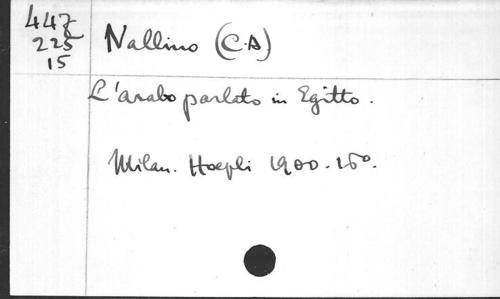 447
225
15
Nallino (C.A)
L'arabo parlato in Egitto.
Milan. Hoepli 1900. 16°.